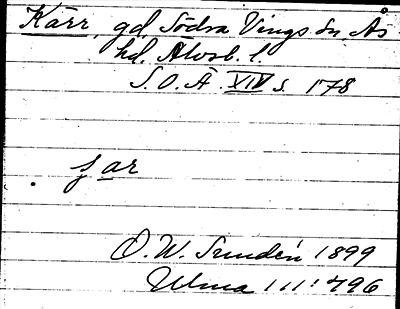 Kärr, gd, Södra Vings sn, Ås
hd. Älvsb. l.
S.O.Ä. XIV s. 178
jar
O.W. Sundén 1899
Ulma 111:496